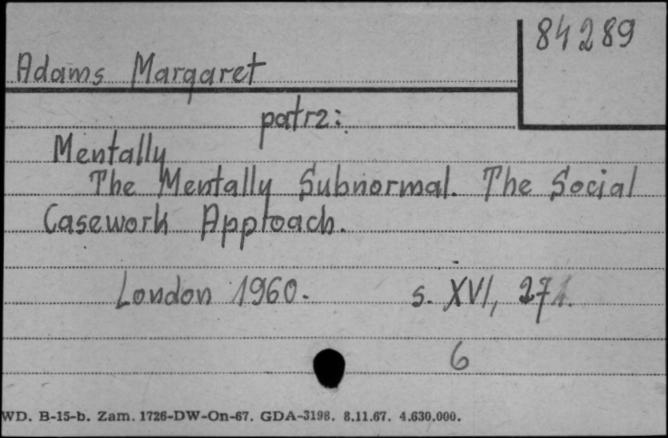 84289
Adams Margaret
patrz:
Mentally
The Mentally Subnormal. The Social
Casework Approach.
London 1960. s. XVI, 271.
6
WD. B-15-b. Zam. 1726-DW-On-67. GDA-3198. 8.11.67. 4.630.000.